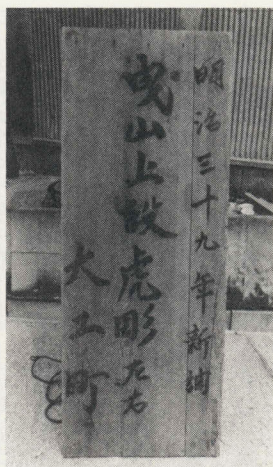 明治三十九年新調
曳山上段虎彫左右
大工町